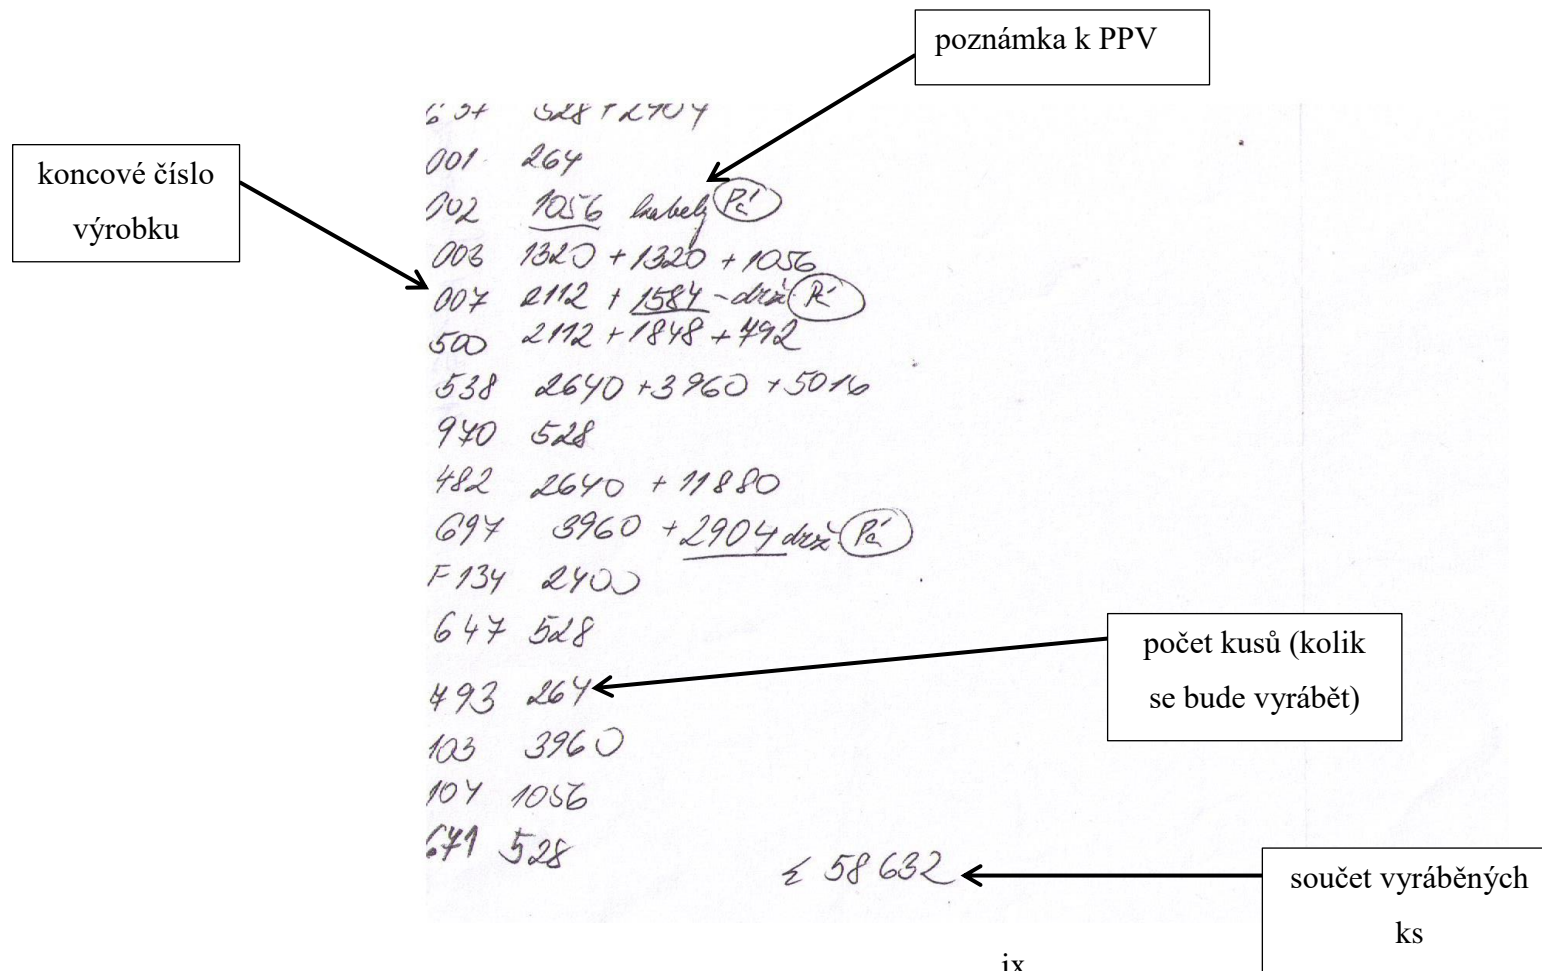 poznámka k PPV
koncové číslo
výrobku
637 528 + 2904
001 264
002 1056 kabely Pá
003 1320 + 1320 + 1056
007 2112 + 1584 - drž Pá
500 2112 + 1848 + 792
538 2640 + 3960 + 5016
970 528
482 2640 + 11880
697 3960 + 2904 drž Pá
F134 2400
647 528
793 264
103 3960
104 1056
671 528
počet kusů (kolik
se bude vyrábět)
Σ 58 632
součet vyráběných
ks
ix